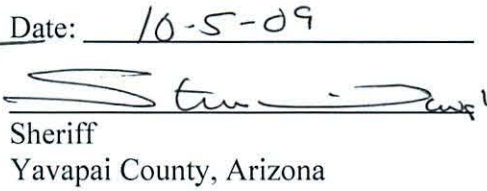 Date: 10-5-09
Sheriff
Yavapai County, Arizona